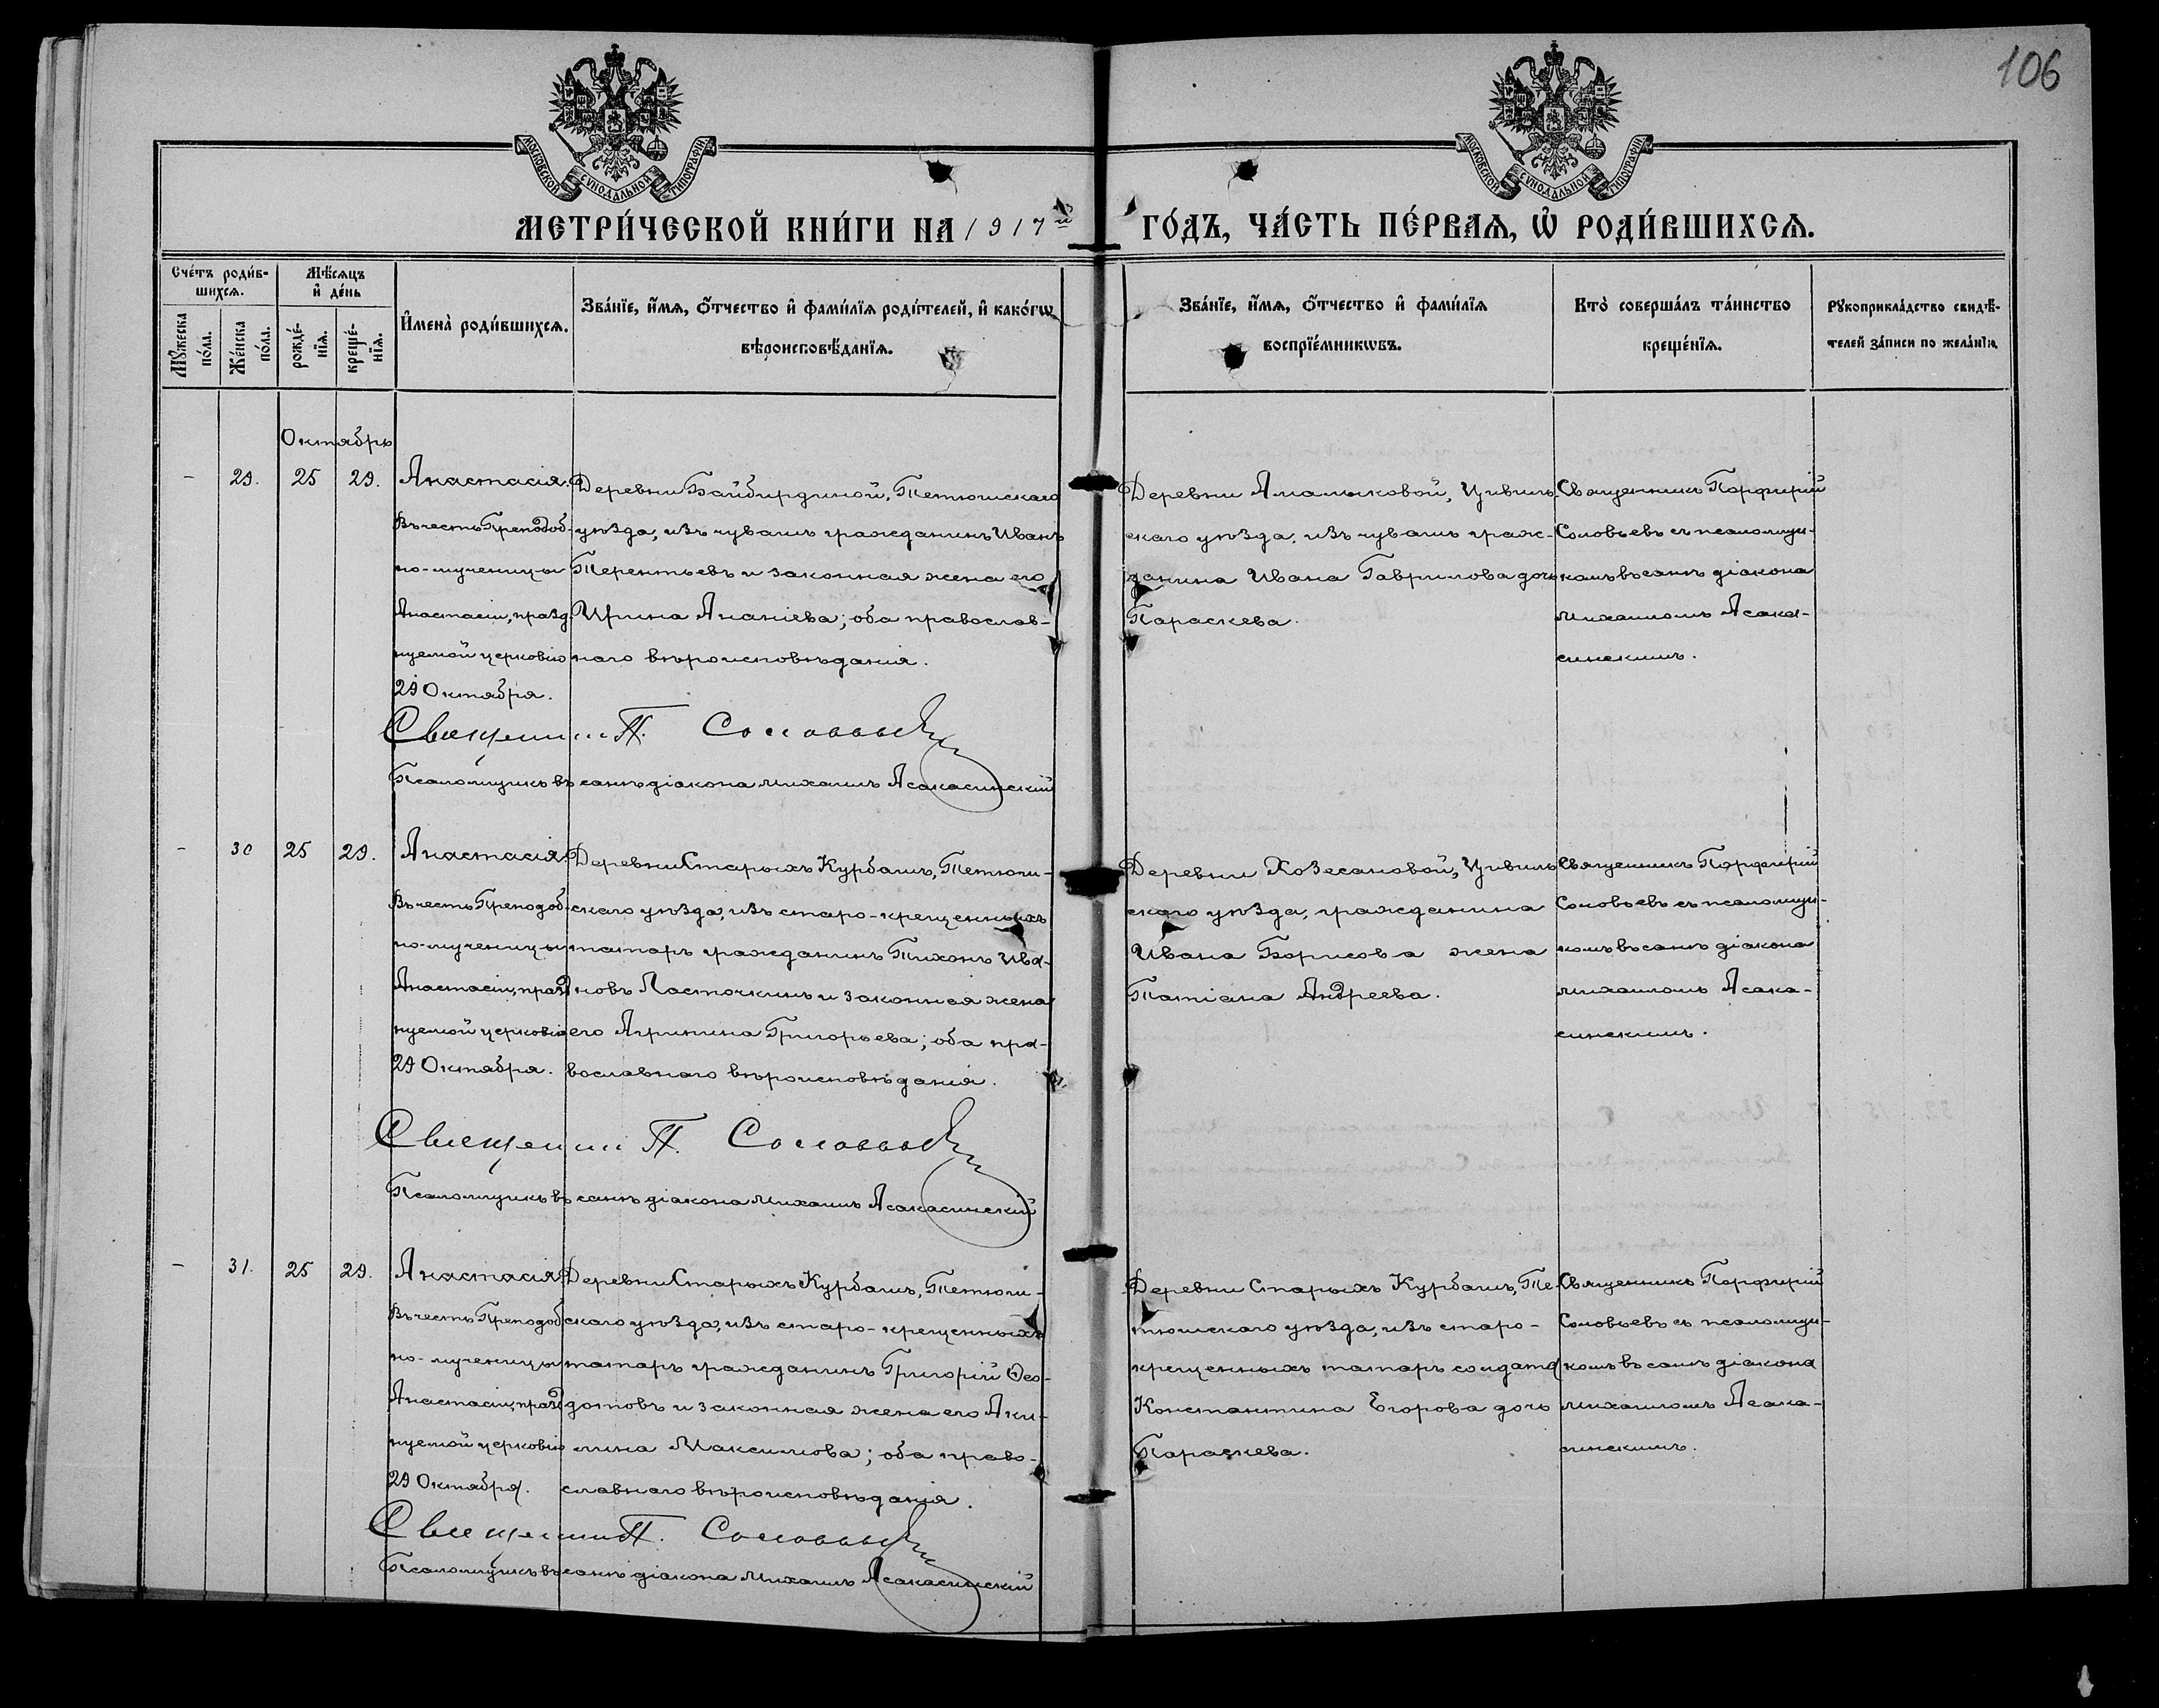 106
МОСКОВСКОЙ СѴНОДАЛЬНОЙ ТИПОГРАФІИ
МОСКОВСКОЙ СѴНОДАЛЬНОЙ ТИПОГРАФІИ
МЕТРИ́ЧЕСКОЙ КНИ́ГИ НА 1917й ГО́ДЪ, ЧА́СТЬ ПЕ́РВАѦ, Ѡ҆ РОДИ́ВШИХСѦ.
Сче́тъ роди́в-
шихсѧ.
Мꙋ́жеска
по́ла.
Же́нска
по́ла.
Мѣ́сѧцъ
и҆ де́нь
рожде́-
нїѧ.
креще́-
нїѧ.
И҆мена̀ роди́вшихсѧ.
Зва́нїе, и҆́мѧ, ѻ҆́тчество и҆ фами́лїѧ роди́телей, и҆ како́гѡ
вѣроисповѣ́данїѧ.
Зва́нїе, и҆́мѧ, ѻ҆́тчество и҆ фами́лїѧ
воспрїе́мникѡвъ.
Кто̀ соверша́лъ та́инство
креще́нїѧ.
Рꙋкоприкла́дство свидѣ́-
телей за́писи по жела́нїю.
Октябрь
- 29. 25 29.
Анастасія.
Въ честь Преподоб-
но-мученицы
Анастасіи, празд-
нуемой церковію
29 Октября.
Деревни Байбирдиной, Тетюшскаго
уѣзда, изъ чувашъ гражданинъ Иванъ
Терентьевъ и законная жена его
Ирина Ананіева; оба православ-
наго вѣроисповѣданія.
Деревни Амалыковой, Цивиль-
скаго уѣзда, изъ чувашъ граж-
данина Ивана Гаврилова дочь
Параскева.
Священникъ Порфирій
Соловьевъ съ псаломщи-
комъ въ санѣ діакона
Михаиломъ Асака-
синскимъ.
Священникъ П. Соловьевъ
Псаломщикъ въ санѣ діакона Михаилъ Асакасинскій
- 30 25 29.
Анастасія.
Въ честь Преподоб-
но-мученицы
Анастасіи, празд-
нуемой церковію
29 Октября.
Деревни Старыхъ Курбашъ, Тетюш-
скаго уѣзда, изъ старо-крещенныхъ
татаръ гражданинъ Тихонъ Ива-
новъ Ласточкинъ и законная жена
его Агрипина Григорьева; оба пра-
вославнаго вѣроисповѣданія.
Деревни Хозесановой, Цивиль-
скаго уѣзда, гражданина
Ивана Борисова жена
Татіана Андреева.
Священникъ Порфирій
Соловьевъ съ псаломщи-
комъ въ санѣ діакона
Михаиломъ Асака-
синскимъ.
Священникъ П. Соловьевъ
Псаломщикъ въ санѣ діакона Михаилъ Асакасинскій
- 31. 25 29.
Анастасія.
Въ честь Преподоб-
но-мученицы
Анастасіи, празд-
нуемой церковію
29 Октября.
Деревни Старыхъ Курбашъ, Тетюш-
скаго уѣзда, изъ старо-крещенныхъ
татаръ гражданинъ Григорій Ѳео-
дотовъ и законная жена его Аки-
лина Максимова; оба право-
славнаго вѣроисповѣданія.
Деревни Старыхъ Курбашъ, Те-
тюшскаго уѣзда, изъ старо-
крещенныхъ татаръ солдата
Константина Егорова дочь
Параскева.
Священникъ Порфирій
Соловьевъ съ псаломщи-
комъ въ санѣ діакона
Михаиломъ Асака-
синскимъ.
Священникъ П. Соловьевъ
Псаломщикъ въ санѣ діакона Михаилъ Асакасинскій